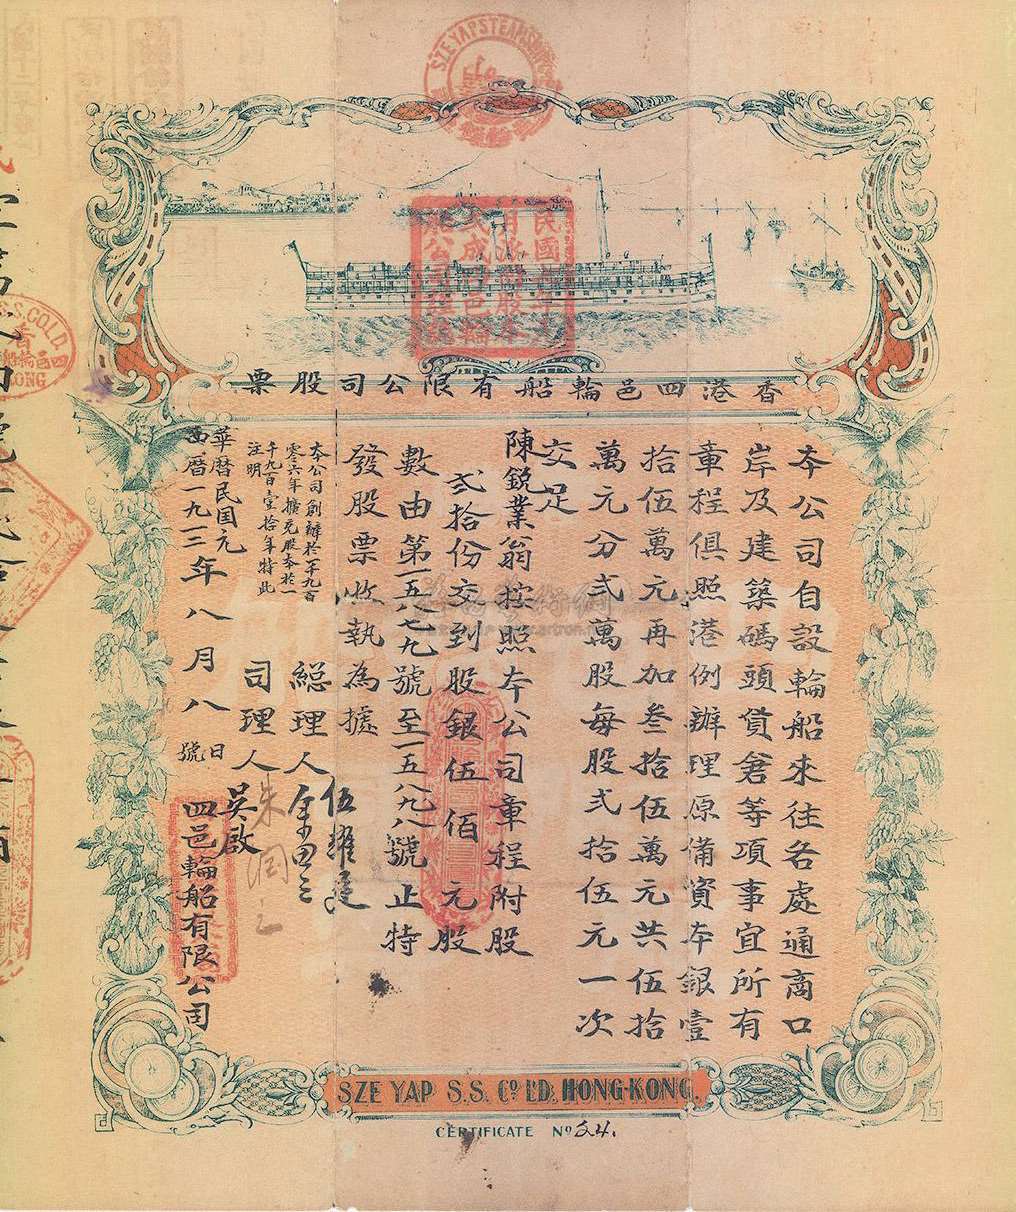 SZE YAP STEAMSHIP
香港四邑輪船有限公司股票
本公司自設輪船來往各處通商口
岸及建築碼頭貨倉等項事宜所有
章程俱照港例辦理原備資本銀壹
拾伍萬元再加叁拾伍萬元共伍拾
萬元分弍萬股每股弍拾伍元一次
交足
陳銳業翁按照本公司章程附股
弍拾份交到股銀伍佰元股
數由第一五八七九號至一五八九八號止特
發股票收執為據
本公司創辦於一千九百
零六年擴充股本於一
千九百壹拾年特此
注明
總理人
伍耀廷
余
司理人
吳啟
朱潤之
華曆民国元
西曆一九一二年八月八日號
四邑輪船有限公司
SZE YAP S.S. Co. L'D. HONG-KONG.
CERTIFICATE No 24.